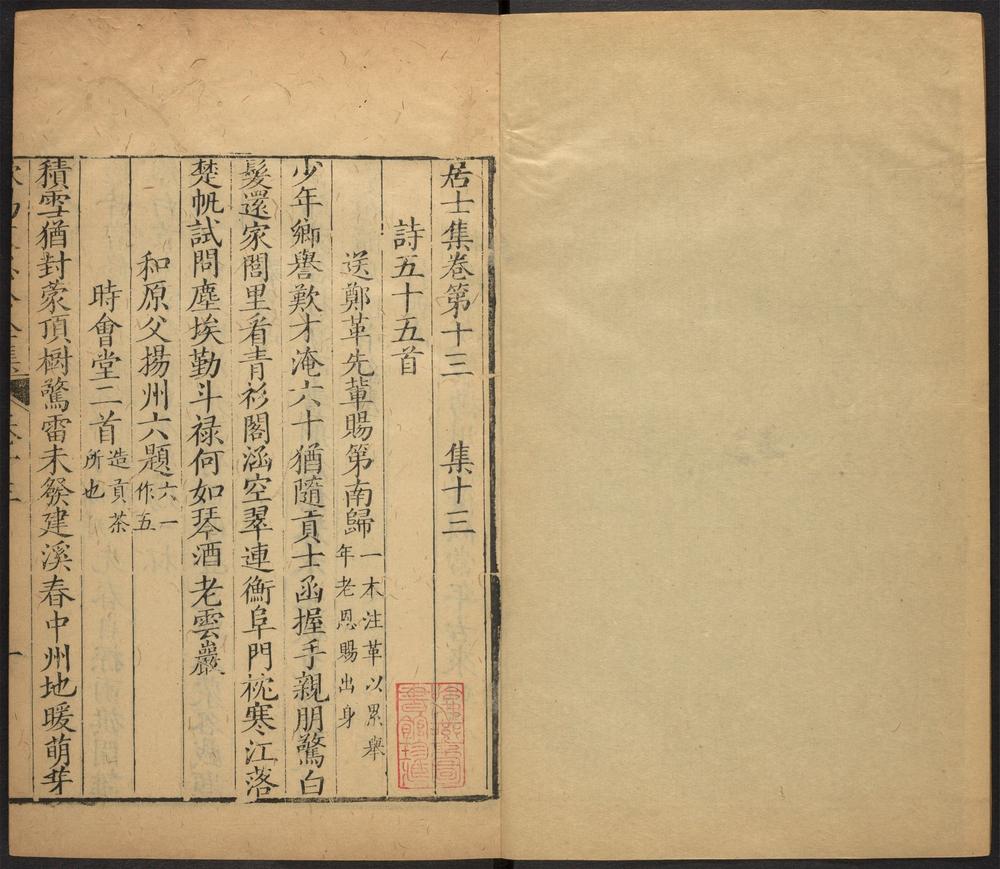 居士集卷第十三　集十三
詩五十五首
送鄭革先輩賜第南歸一本注革以累舉年老恩賜出身
少年鄉譽歎才淹六十猶隨貢士函握手親朋驚白
髮還家閭里看青衫閣涵空翠連衡阜門枕寒江落
楚帆試問塵埃勤斗禄何如琴酒老雲巖
和原父揚州六題六一作五
時會堂二首造貢茶所也
積雪猶封蒙頂樹驚雷未發建溪春中州地暖萌芽